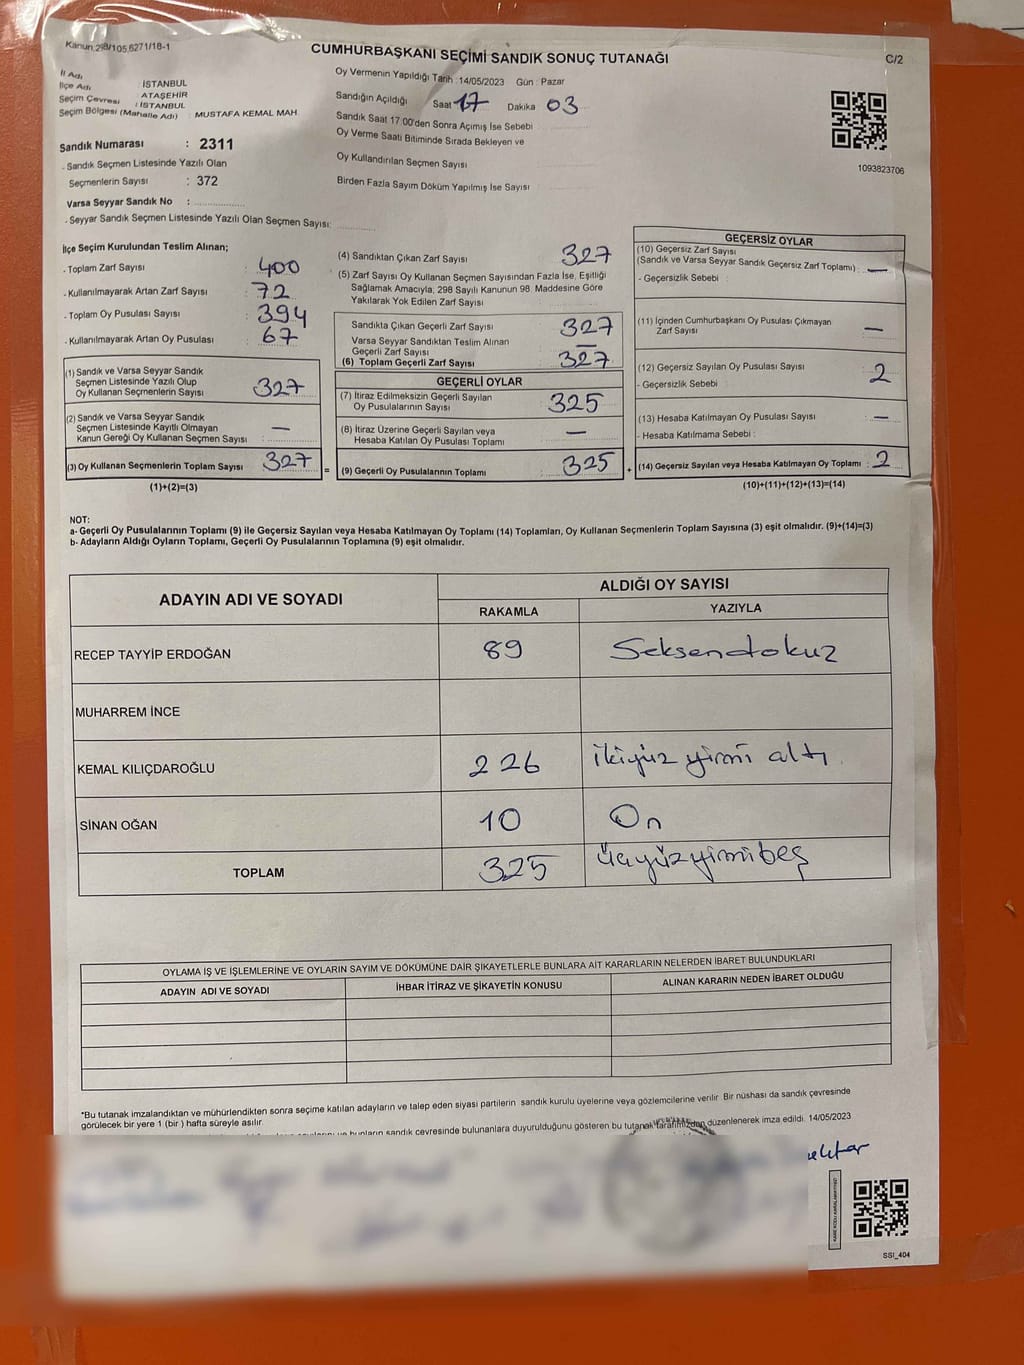 Kanun,298/105,6271/18-1
CUMHURBAŞKANI SEÇİMİ SANDIK SONUÇ TUTANAĞI
C/2
İl Adı : İSTANBUL
İlçe Adı : ATAŞEHİR
Seçim Çevresi : İSTANBUL
Seçim Bölgesi (Mahalle Adı) : MUSTAFA KEMAL MAH
Sandık Numarası : 2311
- Sandık Seçmen Listesinde Yazılı Olan
Seçmenlerin Sayısı : 372
Varsa Seyyar Sandık No :
- Seyyar Sandık Seçmen Listesinde Yazılı Olan Seçmen Sayısı:
Oy Vermenin Yapıldığı Tarih : 14/05/2023 Gün : Pazar
Sandığın Açıldığı Saat 17 Dakika 03
Sandık Saat 17:00'den Sonra Açımış İse Sebebi
Oy Verme Saati Bitiminde Sırada Bekleyen ve
Oy Kullandırılan Seçmen Sayısı
Birden Fazla Sayım Döküm Yapılmış İse Sayısı
1093823706
İlçe Seçim Kurulundan Teslim Alınan;
- Toplam Zarf Sayısı : 400
- Kullanılmayarak Artan Zarf Sayısı : 72
- Toplam Oy Pusulası Sayısı : 394
- Kullanılmayarak Artan Oy Pusulası : 67
(1) Sandık ve Varsa Seyyar Sandık
Seçmen Listesinde Yazılı Olup
Oy Kullanan Seçmenlerin Sayısı : 327
(2) Sandık ve Varsa Seyyar Sandık
Seçmen Listesinde Kayıtlı Olmayan
Kanun Gereği Oy Kullanan Seçmen Sayısı : —
(3) Oy Kullanan Seçmenlerin Toplam Sayısı : 327
(1)+(2)=(3)
(4) Sandıktan Çıkan Zarf Sayısı : 327
(5) Zarf Sayısı Oy Kullanan Seçmen Sayısından Fazla İse, Eşitliği
Sağlamak Amacıyla, 298 Sayılı Kanunun 98. Maddesine Göre
Yakılarak Yok Edilen Zarf Sayısı :
Sandıkta Çıkan Geçerli Zarf Sayısı : 327
Varsa Seyyar Sandıktan Teslim Alınan
Geçerli Zarf Sayısı : —
(6) Toplam Geçerli Zarf Sayısı : 327
GEÇERLİ OYLAR
(7) İtiraz Edilmeksizin Geçerli Sayılan
Oy Pusulalarının Sayısı : 325
(8) İtiraz Üzerine Geçerli Sayılan veya
Hesaba Katılan Oy Pusulası Toplamı : —
= (9) Geçerli Oy Pusulalarının Toplamı : 325
GEÇERSİZ OYLAR
(10) Geçersiz Zarf Sayısı
(Sandık ve Varsa Seyyar Sandık Geçersiz Zarf Toplamı) : —
- Geçersizlik Sebebi :
(11) İçinden Cumhurbaşkanı Oy Pusulası Çıkmayan
Zarf Sayısı : —
(12) Geçersiz Sayılan Oy Pusulası Sayısı : 2
- Geçersizlik Sebebi :
(13) Hesaba Katılmayan Oy Pusulası Sayısı : —
- Hesaba Katılmama Sebebi :
+ (14) Geçersiz Sayılan veya Hesaba Katılmayan Oy Toplamı : 2
(10)+(11)+(12)+(13)=(14)
NOT:
a- Geçerli Oy Pusulalarının Toplamı (9) ile Geçersiz Sayılan veya Hesaba Katılmayan Oy Toplamı (14) Toplamları, Oy Kullanan Seçmenlerin Toplam Sayısına (3) eşit olmalıdır. (9)+(14)=(3)
b- Adayların Aldığı Oyların Toplamı, Geçerli Oy Pusulalarının Toplamına (9) eşit olmalıdır.
ADAYIN ADI VE SOYADI
ALDIĞI OY SAYISI
RAKAMLA YAZIYLA
RECEP TAYYİP ERDOĞAN 89 Seksendokuz
MUHARREM İNCE
KEMAL KILIÇDAROĞLU 226 ikiyüz yirmi altı
SİNAN OĞAN 10 On
TOPLAM 325 üçyüzyirmibeş
OYLAMA İŞ VE İŞLEMLERİNE VE OYLARIN SAYIM VE DÖKÜMÜNE DAİR ŞİKAYETLERLE BUNLARA AİT KARARLARIN NELERDEN İBARET BULUNDUKLARI
ADAYIN ADI VE SOYADI İHBAR İTİRAZ VE ŞİKAYETİN KONUSU ALINAN KARARIN NEDEN İBARET OLDUĞU
*Bu tutanak imzalandıktan ve mühürlendikten sonra seçime katılan adayların ve talep eden siyasi partilerin sandık kurulu üyelerine veya gözlemcilerine verilir. Bir nüshası da sandık çevresinde
görülecek bir yere 1 (bir ) hafta süreyle asılır.
bunların sandık çevresinde bulunanlara duyurulduğunu gösteren bu tutanak tarafımızdan düzenlenerek imza edildi. 14/05/2023
SSI_404